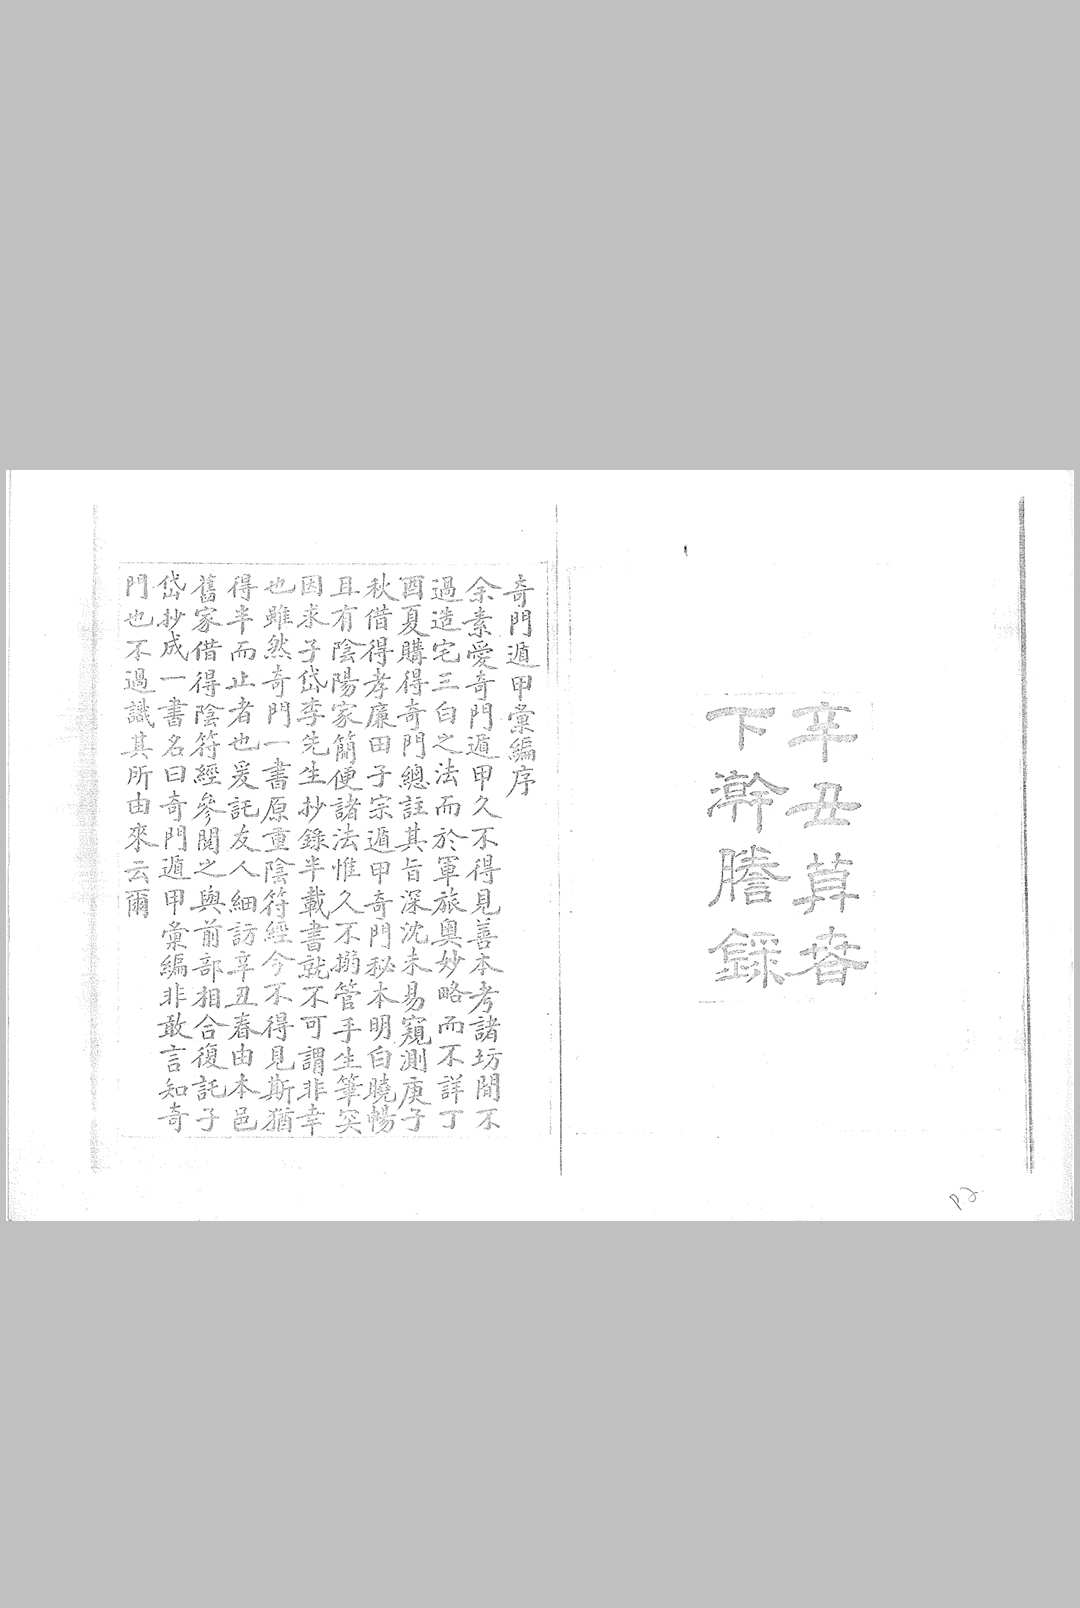 辛丑草春
下澣謄錄
奇門遁甲彙編序
余素愛奇門遁甲久不得見善本考諸坊間不
過造宅三白之法而於軍旅奧妙略而不詳丁
酉夏購得奇門總註其旨深沈未易窺測庚子
秋借得孝廉田子宗遁甲奇門秘本明白曉暢
且有陰陽家簡便諸法惟久不搦管手生筆突
因求子岱李先生抄錄半載書就不可謂非幸
也雖然奇門一書原重陰符經今不得見斯猶
得半而止者也爰託友人細訪辛丑春由本邑
舊家借得陰符經參閱之與前部相合復託子
岱抄成一書名曰奇門遁甲彙編非敢言知奇
門也不過識其所由來云爾
P2